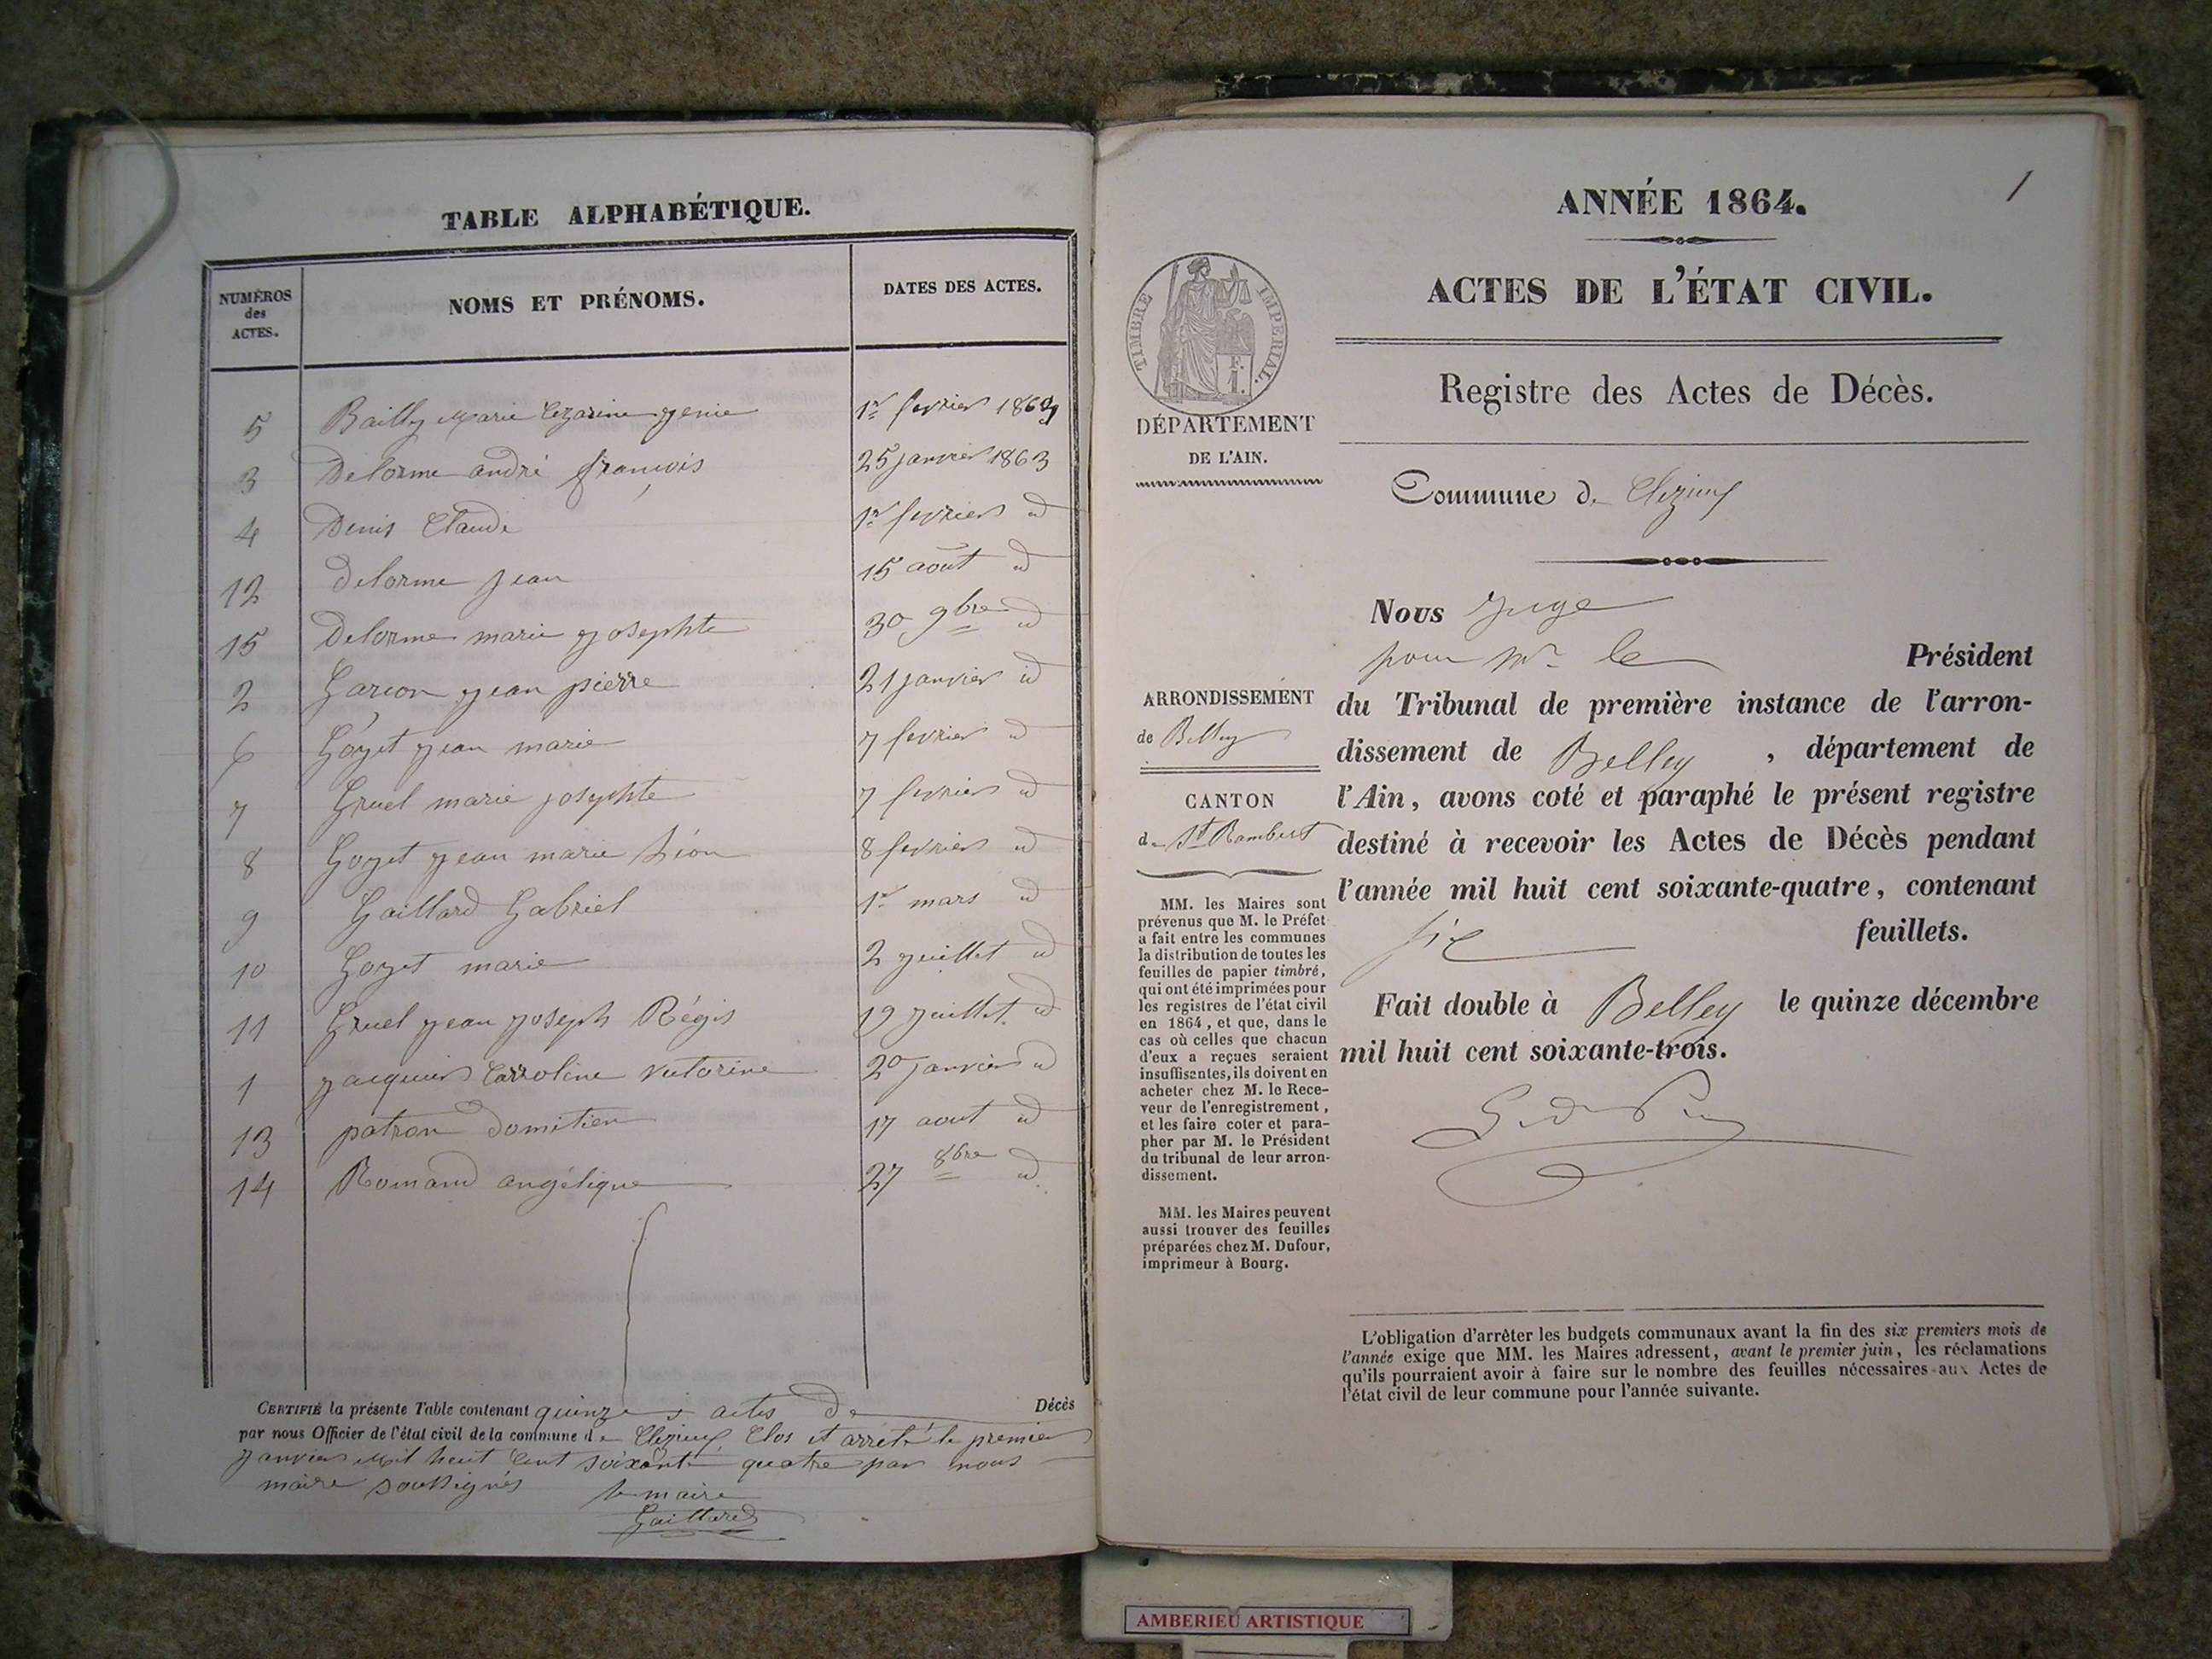 TABLE ALPHABÉTIQUE.
NUMÉROS des ACTES. NOMS ET PRÉNOMS. DATES DES ACTES.
5 Bailly Marie Cezarine genie 1er fevrier 1863
3 Delorme andré françois 25 janvier 1863
4 Denis Claude 1er fevrier id
12 Delorme jean 15 août id
15 Delorme marie josephte 30 9bre id
2 Garcon jean pierre 21 janvier id
6 Goyet jean marie 7 fevrier id
7 Gruel marie josephte 7 fevrier id
8 Goyet jean marie Léon 8 fevrier id
9 Gaillard Gabriel 1er mars id
10 Goyet marie 2 juillet id
11 Gruel jean joseph Régis 19 juillet id
1 jacquier Carroline victorine 20 janvier id
13 patron domitien 17 aout id
14 Romand angélique 27 8bre id
CERTIFIÉ la présente Table contenant quinze actes De Décès
par nous Officier de l'état civil de la commune de Cleyzieu Clos et arrêté le premier
janvier mil huit cent soixante quatre par nous
maire soussignés le maire
Gaillard
1
ANNÉE 1864.
ACTES DE L'ÉTAT CIVIL.
Registre des Actes de Décès.
TIMBRE IMPÉRIAL.
F.
1.
DÉPARTEMENT
DE L'AIN.
Commune de Cleyzieu
Nous juge
pour Mr le Président
du Tribunal de première instance de l'arron-
dissement de Belley, département de
l'Ain, avons coté et paraphé le présent registre
destiné à recevoir les Actes de Décès pendant
l'année mil huit cent soixante-quatre, contenant
six feuillets.
Fait double à Belley le quinze décembre
mil huit cent soixante-trois.
ARRONDISSEMENT
de Belley
CANTON
de St Rambert
MM. les Maires sont
prévenus que M. le Préfet
a fait entre les communes
la distribution de toutes les
feuilles de papier timbré,
qui ont été imprimées pour
les registres de l'état civil
en 1864, et que, dans le
cas où celles que chacun
d'eux a reçues seraient
insuffisantes, ils doivent en
acheter chez M. le Rece-
veur de l'enregistrement,
et les faire coter et para-
pher par M. le Président
du tribunal de leur arron-
dissement.
MM. les Maires peuvent
aussi trouver des feuilles
préparées chez M. Dufour,
imprimeur à Bourg.
L'obligation d'arrêter les budgets communaux avant la fin des six premiers mois de
l'année exige que MM. les Maires adressent, avant le premier juin, les réclamations
qu'ils pourraient avoir à faire sur le nombre des feuilles nécessaires aux Actes de
l'état civil de leur commune pour l'année suivante.
AMBERIEU ARTISTIQUE